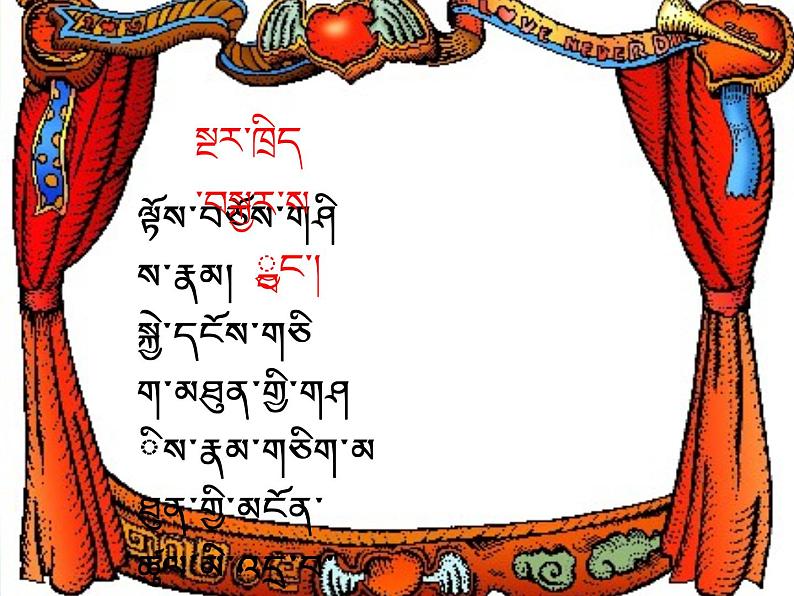 LOVE NEVER D
སྔར་ཁྲིད
་བསྐྱར་ས
ལྟོས་བཅོས་གཤི
ས་རྣམ།
སྦྱང་།
སྐྱེ་དངོས་གཅི
ག་མཐུན་གྱི་གཤ
ིས་རྣམ་གཅིག་མ
ཐུན་གྱི་མངོན་
ཚུལ་མི་འདྲ་བ